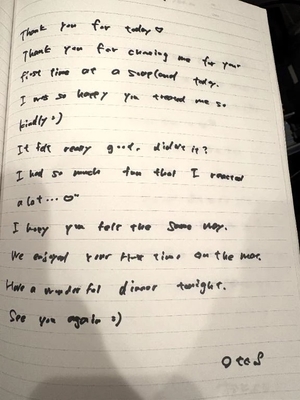 Thank you for today ♡
Thank you for choosing me for your
first time at a soapland today.
I was so happy you treated me so
kindly :)
It felt really good, didn't it?
I had so much fun that I reacted
a lot...
I hope you felt the same way.
We enjoyed your first time on the mat.
Have a wonderful dinner tonight.
See you again :)